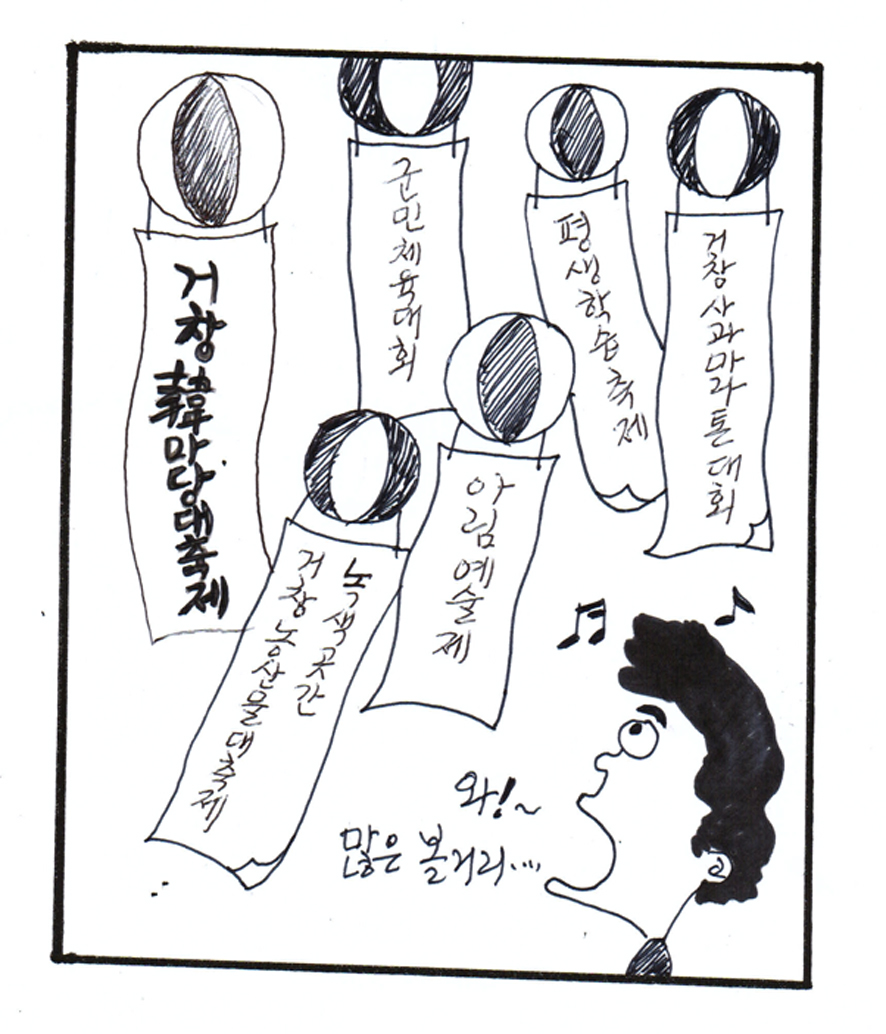 거창韓마당대축제
군민체육대회
평생학습축제
거창사과마라톤대회
아림예술제
녹색곳간
거창농산물대축제
와!~
많은 볼거리....